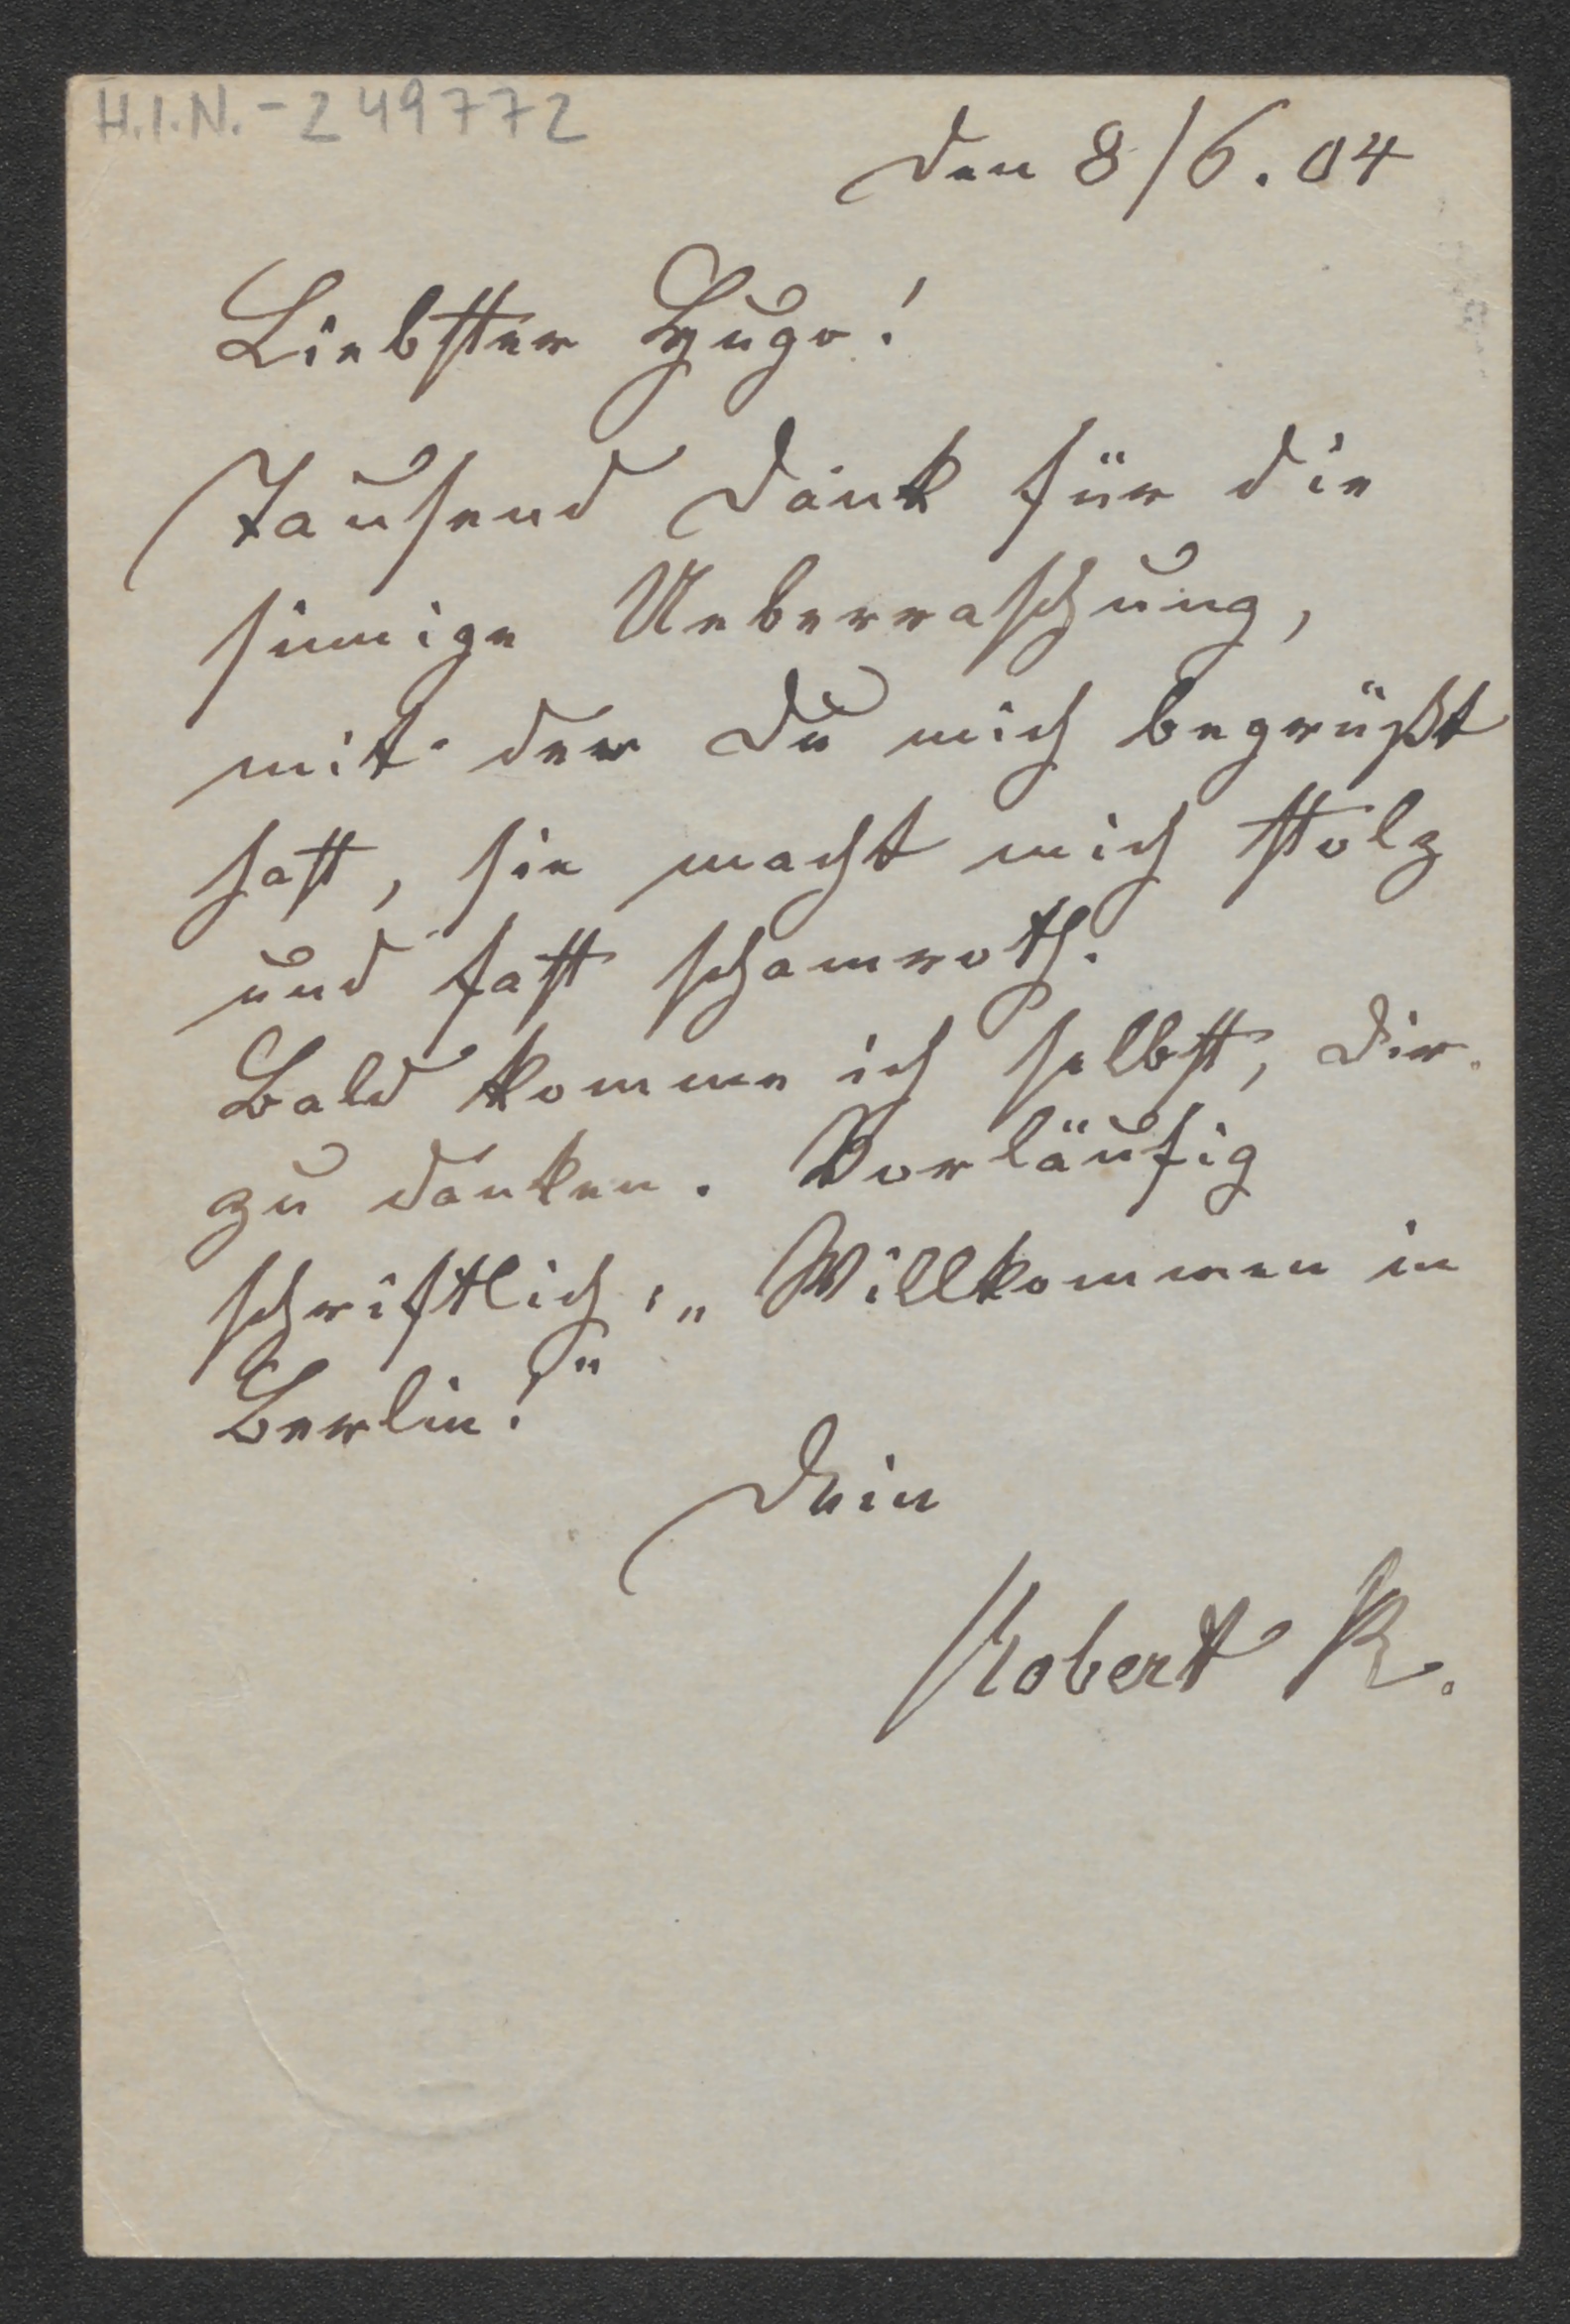 H.I.N.-249772
den 8/6.04
Liebster Hugo!
Tausend Dank für die
sinnige Ueberraschung,
mit der Du mich begrüßt
hast, sie macht mich stolz
und fast schamroth.
Bald komme ich selbst, Dir
zu danken. Vorläufig
schriftlich: „Willkommen in
Berlin!“
Dein
Robert K.